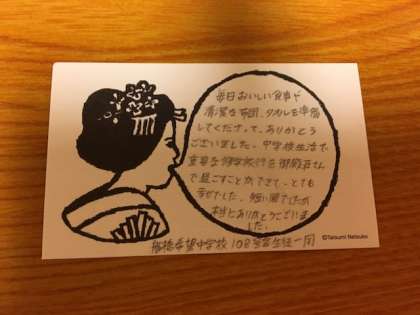 毎日おいしい食事や
清潔な布団、タオルを準備
してくださって、ありがとう
ございました。中学校生活で
重要な修学旅行を御殿荘さん
で過ごすことができて、とても
幸せでした。短い間でしたが
本当にありがとうございま
した。
船橋希望中学校108号室生徒一同
©Tatsumi Natsuko